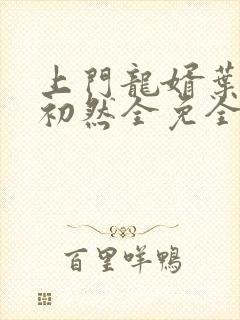 上門龍婿葉
初然全免全
百里咩鴨